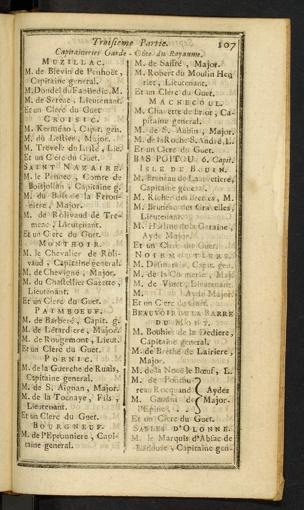 Troisiéme Partie. 107
Capitaineries Garde-Côte du Royaume.
MUZILLAC.
M. de Blevin de Penhoët,
Capitaine general.
M. Dondel du Faoüedic, M.
M. de Serent, Lieutenant.
Et un Clerc du Guet.
CROISIC.
M. Kermeno, Capit. gen.
M. du Lessier, Major.
M. Trevelec de l'Isle, Lie.
Et un Clerc du Guet.
SAINT NAZAIRE.
M. le Pennec, Comte de
Boisjollan, Capitaine g.
M. du Bois de la Feron-
niere, Major.
M. de Rolivaud de Tre-
meac, Lieutenant.
Et un Clerc du Guet.
MONTHOIR.
M. le Chevalier de Roli-
vaud, Capitaine general.
M. de Chevigné, Major.
M. du Chastellier Gazette,
Lieutenant.
Et un Clerc du Guet.
PAIMBOEUF.
M. de Barberé, Capit. g.
M. de Létardiere, Major.
M. de Rougemont, Lieut.
Et un Clerc du Guet.
PORNIC.
M. de la Guerche de Ruals,
Capitaine general.
M. de S. Aignan, Major.
M. de la Tocnaye, Fils,
Lieutenant.
Et un Clerc du Guet.
BOURGNEUF.
M. de l'Epronniere, Capi-
taine general.
M. de Saffré, Major.
M. Robert du Moulin Hen
riet, Lieutenant.
Et un Clerc du Guet.
MACHECOUL.
M. Charette de Briord, Ca-
pitaine general.
M. de S. Aubin, Major.
M. de la Roche S. André, Li
Et un Clerc du Guet.
BAS POITOU 6. Capit.
ISLE DE BOUIN.
M. Bruneau de
Capitaine general.
M. Rocher des Broces, M.
M. Bruneau des Giraelles,
Lieutenant.
M. de la Garaine,
Ayde Major
Et un Clerc du Guet.
NOIRMOUTIERS.
M. Capit. gen.
M. de la Maj.
M. de Lieutenant.
M. Ayde Major
Et un Clerc du Guet.
BEAUVOIR OU LA BARRE
DU MONT.
M. Bouhier de la Dediere,
Capitaine general.
M. de Brethé de Lairiere
Major.
M. de la Noüe le Bœuf, L.
M. de Ponthu
reau Rocquand Aydes
M. Gaudin de Major.
l'Epine,
Et un Clerc du Guet.
SABLES D'OLONNE.
M. le Marquis d'Abzac de
Capitaine gen-